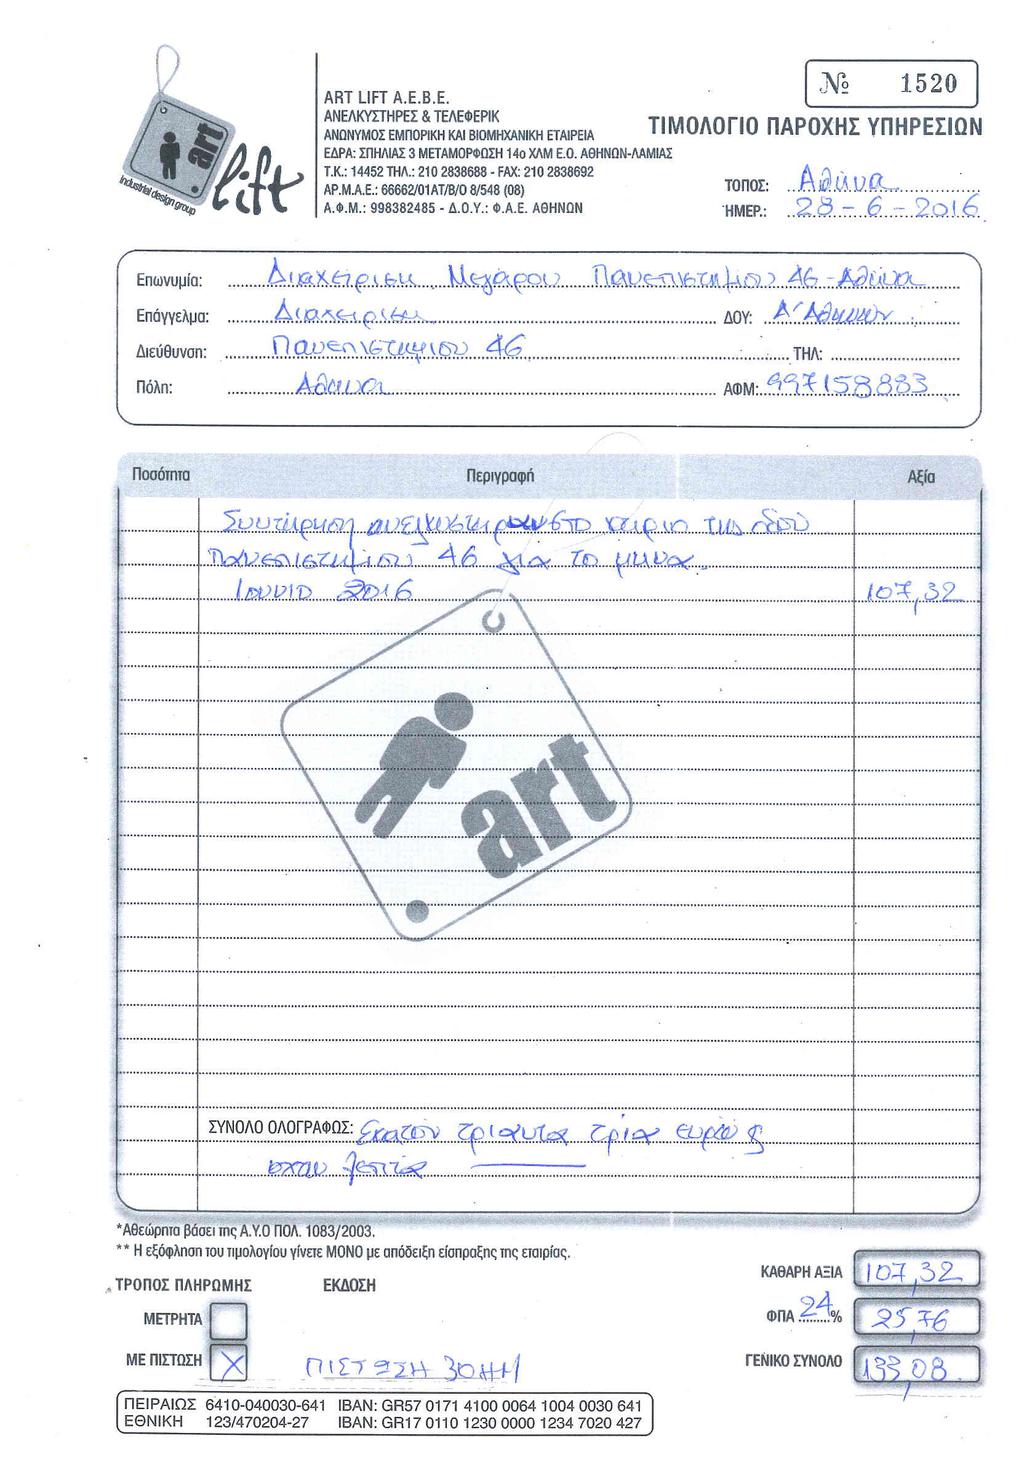 № 1520
ART LIFT Α.Ε.Β.Ε.
ΑΝΕΛΚΥΣΤΗΡΕΣ & ΤΕΛΕΦΕΡΙΚ
ΑΝΩΝΥΜΟΣ ΕΜΠΟΡΙΚΗ ΚΑΙ ΒΙΟΜΗΧΑΝΙΚΗ ΕΤΑΙΡΕΙΑ
ΕΔΡΑ: ΣΠΗΛΙΑΣ 3 ΜΕΤΑΜΟΡΦΩΣΗ 14ο ΧΛΜ Ε.Ο. ΑΘΗΝΩΝ-ΛΑΜΙΑΣ
Τ.Κ.: 14452 ΤΗΛ.: 210 2838688 - FAX: 210 2838692
ΑΡ.Μ.Α.Ε.: 66662/01ΑΤ/Β/Ο 8/548 (08)
Α.Φ.Μ.: 998382485 - Δ.Ο.Υ.: Φ.Α.Ε. ΑΘΗΝΩΝ
art
lift
Industrial design group
ΤΙΜΟΛΟΓΙΟ ΠΑΡΟΧΗΣ ΥΠΗΡΕΣΙΩΝ
ΤΟΠΟΣ: Αθήνα
ΉΜΕΡ.: 28-6-2016
Επωνυμία: Διαχείριση Μεγάρου Πανεπιστημίου 46 - Αθήνα
Επάγγελμα: Διαχείριση ΔΟΥ: Α' Αθηνών
Διεύθυνση: Πανεπιστημίου 46 ΤΗΛ:
Πόλη: Αθήνα ΑΦΜ: 997158883
Ποσότητα Περιγραφή Αξία
Συντήρηση ανελκυστήρων στο κτίριο της οδού
Πανεπιστημίου 46 για το μήνα
Ιούνιο 2016 107,32
art
ΣΥΝΟΛΟ ΟΛΟΓΡΑΦΩΣ: Εκατόν τριάντα τρία ευρώ &
οχτώ λεπτά
*Αθεώρητα βάσει της Α.Υ.Ο ΠΟΛ. 1083/2003.
** Η εξόφληση του τιμολογίου γίνετε ΜΟΝΟ με απόδειξη είσπραξης της εταιρίας.
ΤΡΟΠΟΣ ΠΛΗΡΩΜΗΣ ΕΚΔΟΣΗ
ΚΑΘΑΡΗ ΑΞΙΑ 107,32
ΜΕΤΡΗΤΑ
ΦΠΑ 24% 25,76
ΜΕ ΠΙΣΤΩΣΗ X ΠΙΣΤΩΣΗ 30ΗΗ
ΓΕΝΙΚΟ ΣΥΝΟΛΟ 133,08
ΠΕΙΡΑΙΩΣ 6410-040030-641 IBAN: GR57 0171 4100 0064 1004 0030 641
ΕΘΝΙΚΗ 123/470204-27 IBAN: GR17 0110 1230 0000 1234 7020 427